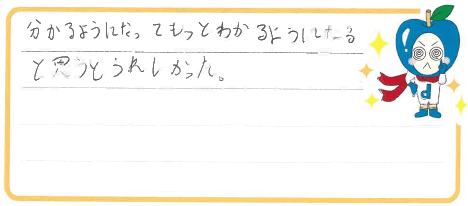 分かるようになってもっとわかるようになる
と思うとうれしかった。
d